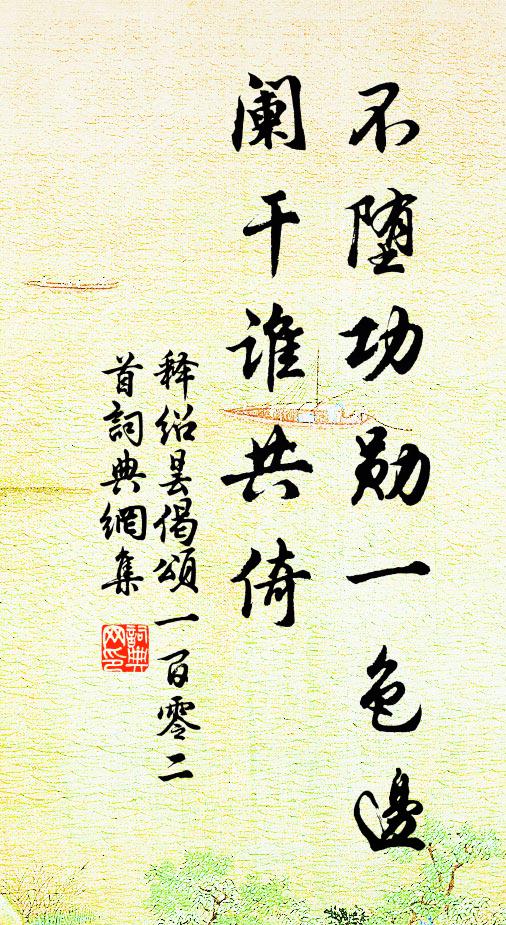 不堕功勋一色邊
阑干谁共倚
释绍昙偈頌一百零二
首詞典網集
詞典
网印